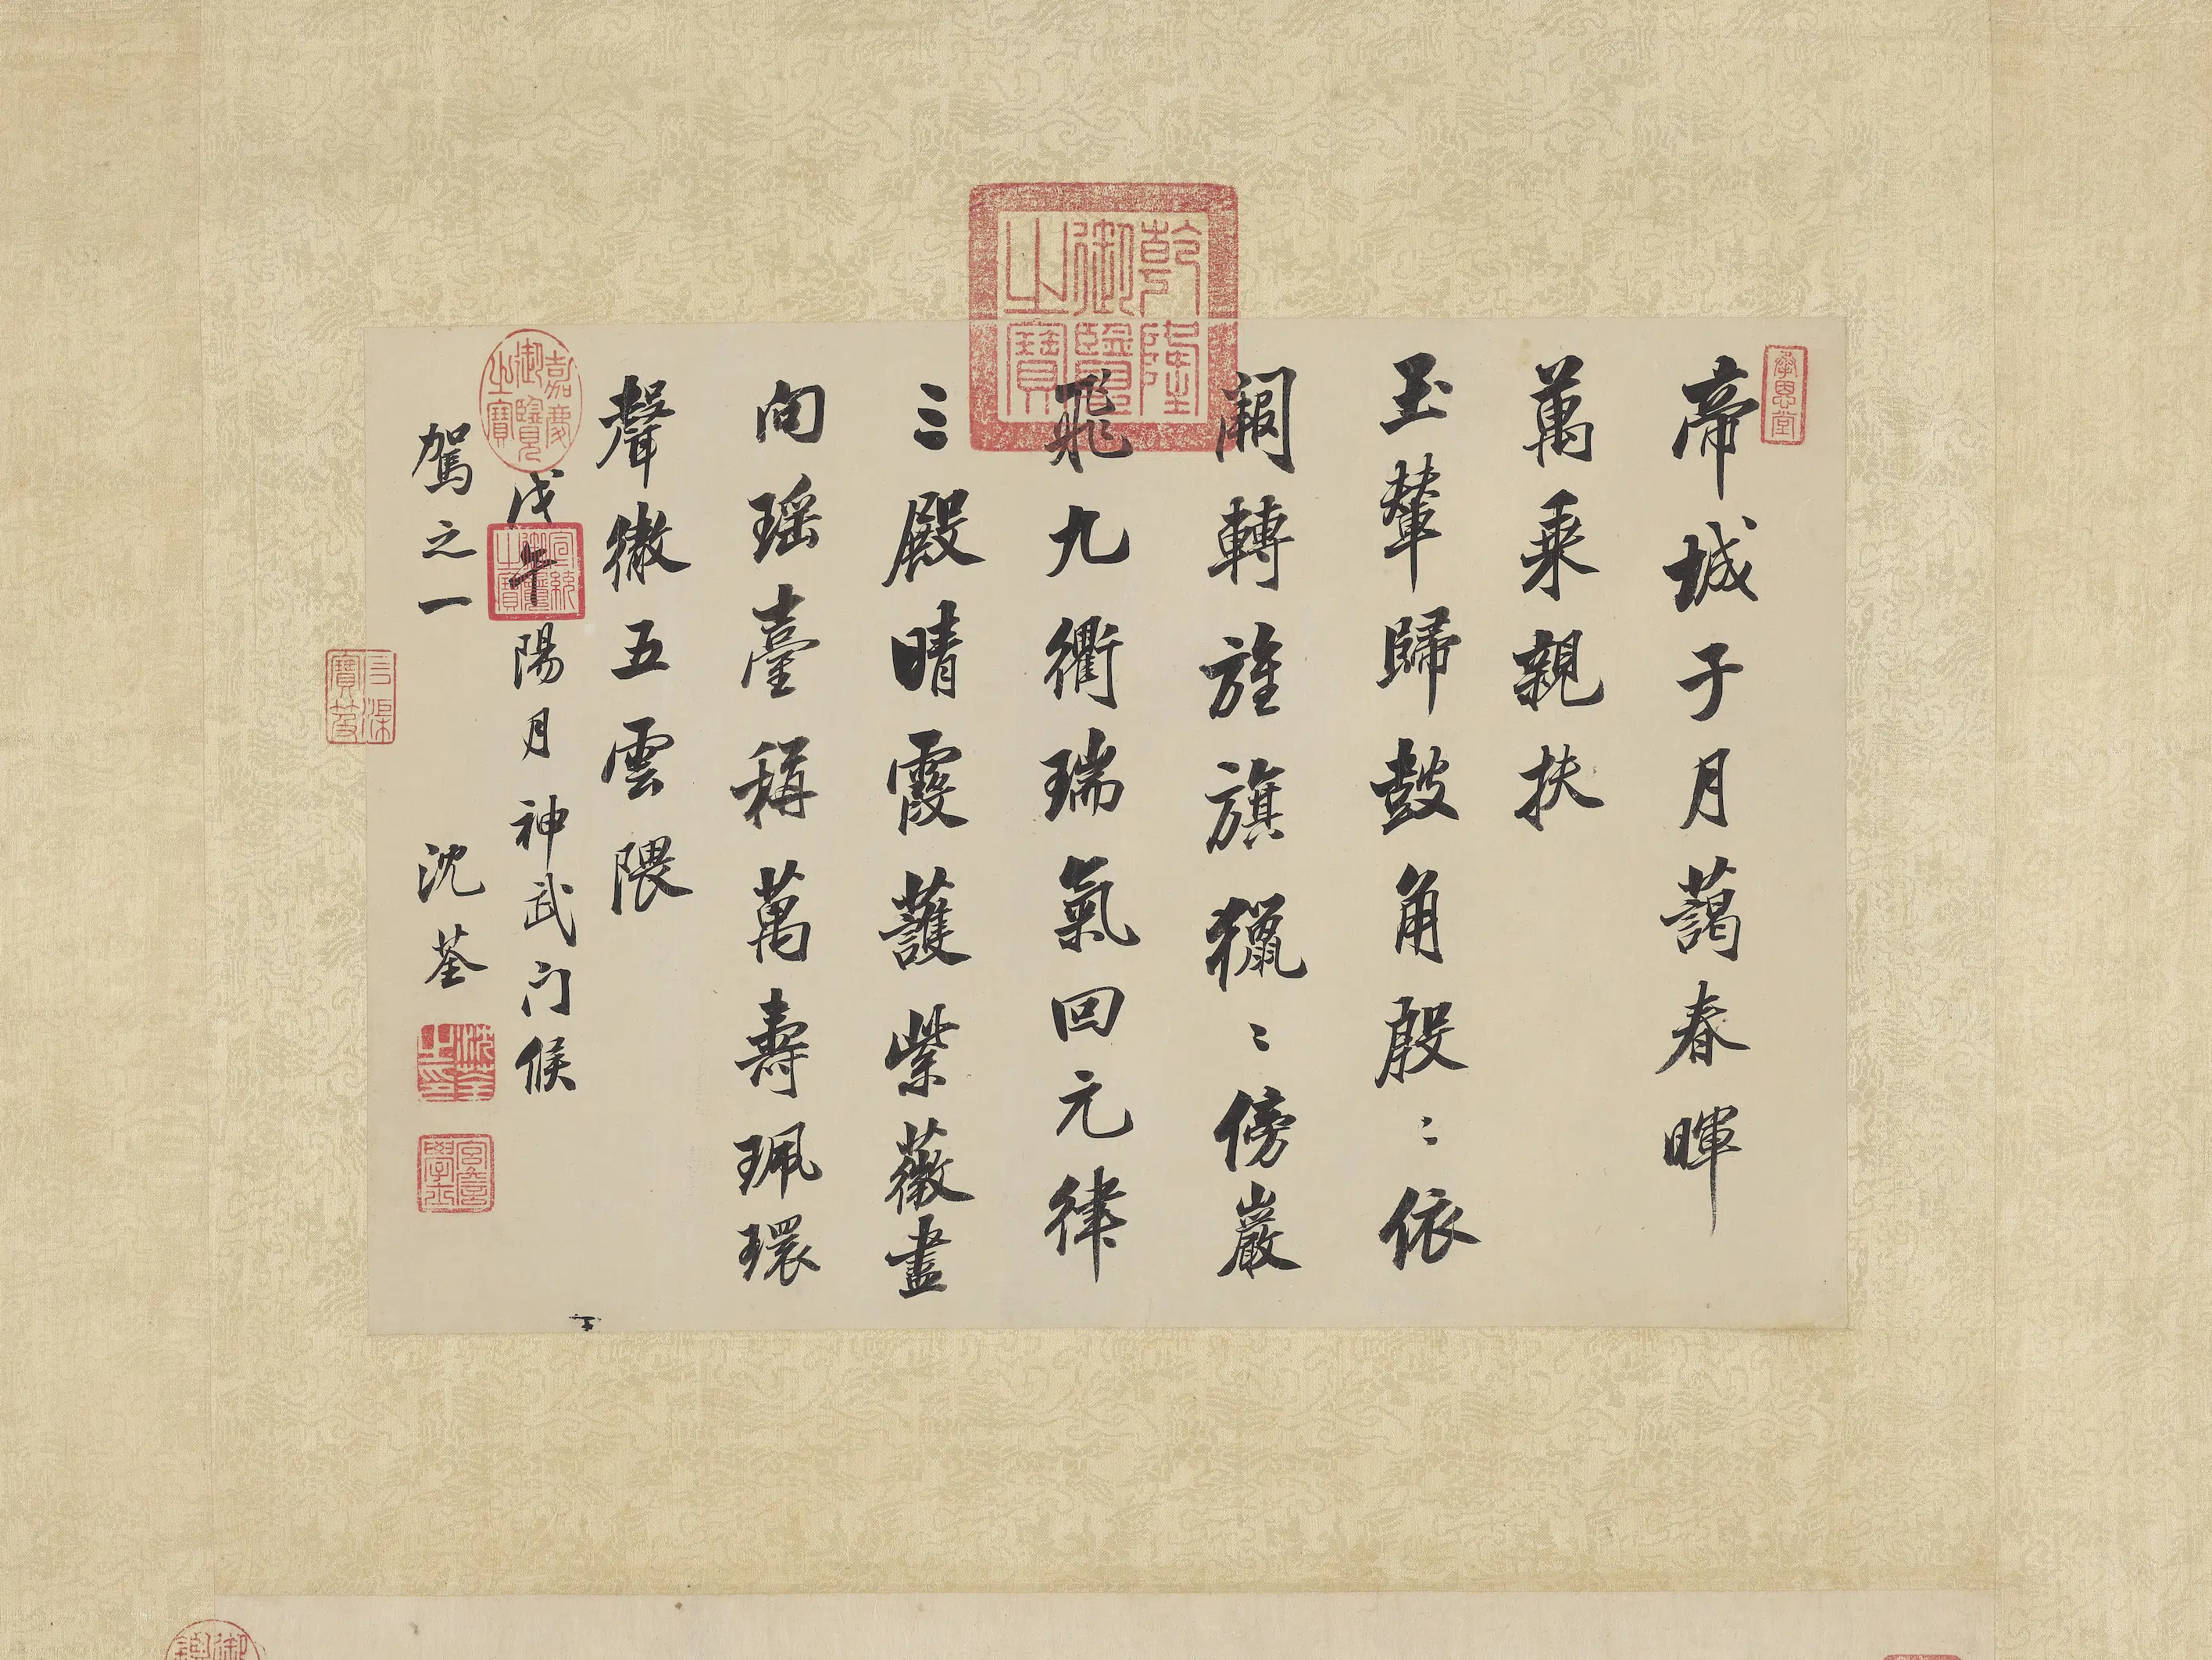 帝城子月藹春暉
萬乘親扶
玉輦歸鼓角殷〻依
闕轉旌旗獵〻傍巖
飛九衢瑞氣回元律
三殿晴霞護紫薇盡
向瑶臺稱萬壽珮環
聲徹五雲隈
戊午陽月神武门候
駕之一
沈荃
乾隆御覽之寶
嘉慶御覽之寶
宣統御覽之寶
沈荃之印
宮詹學士